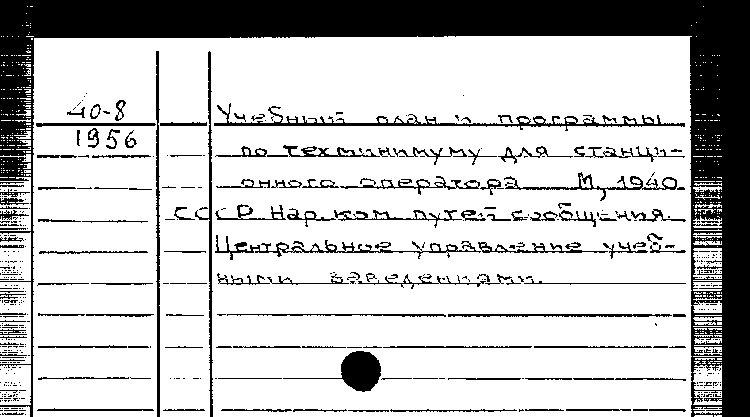 40-8
1956
Учебный план и программы
по техминимуму для станци-
онного оператора М, 1940
СССР Нар. ком. путей сообщения.
Центральное управление учеб-
ными заведениями.